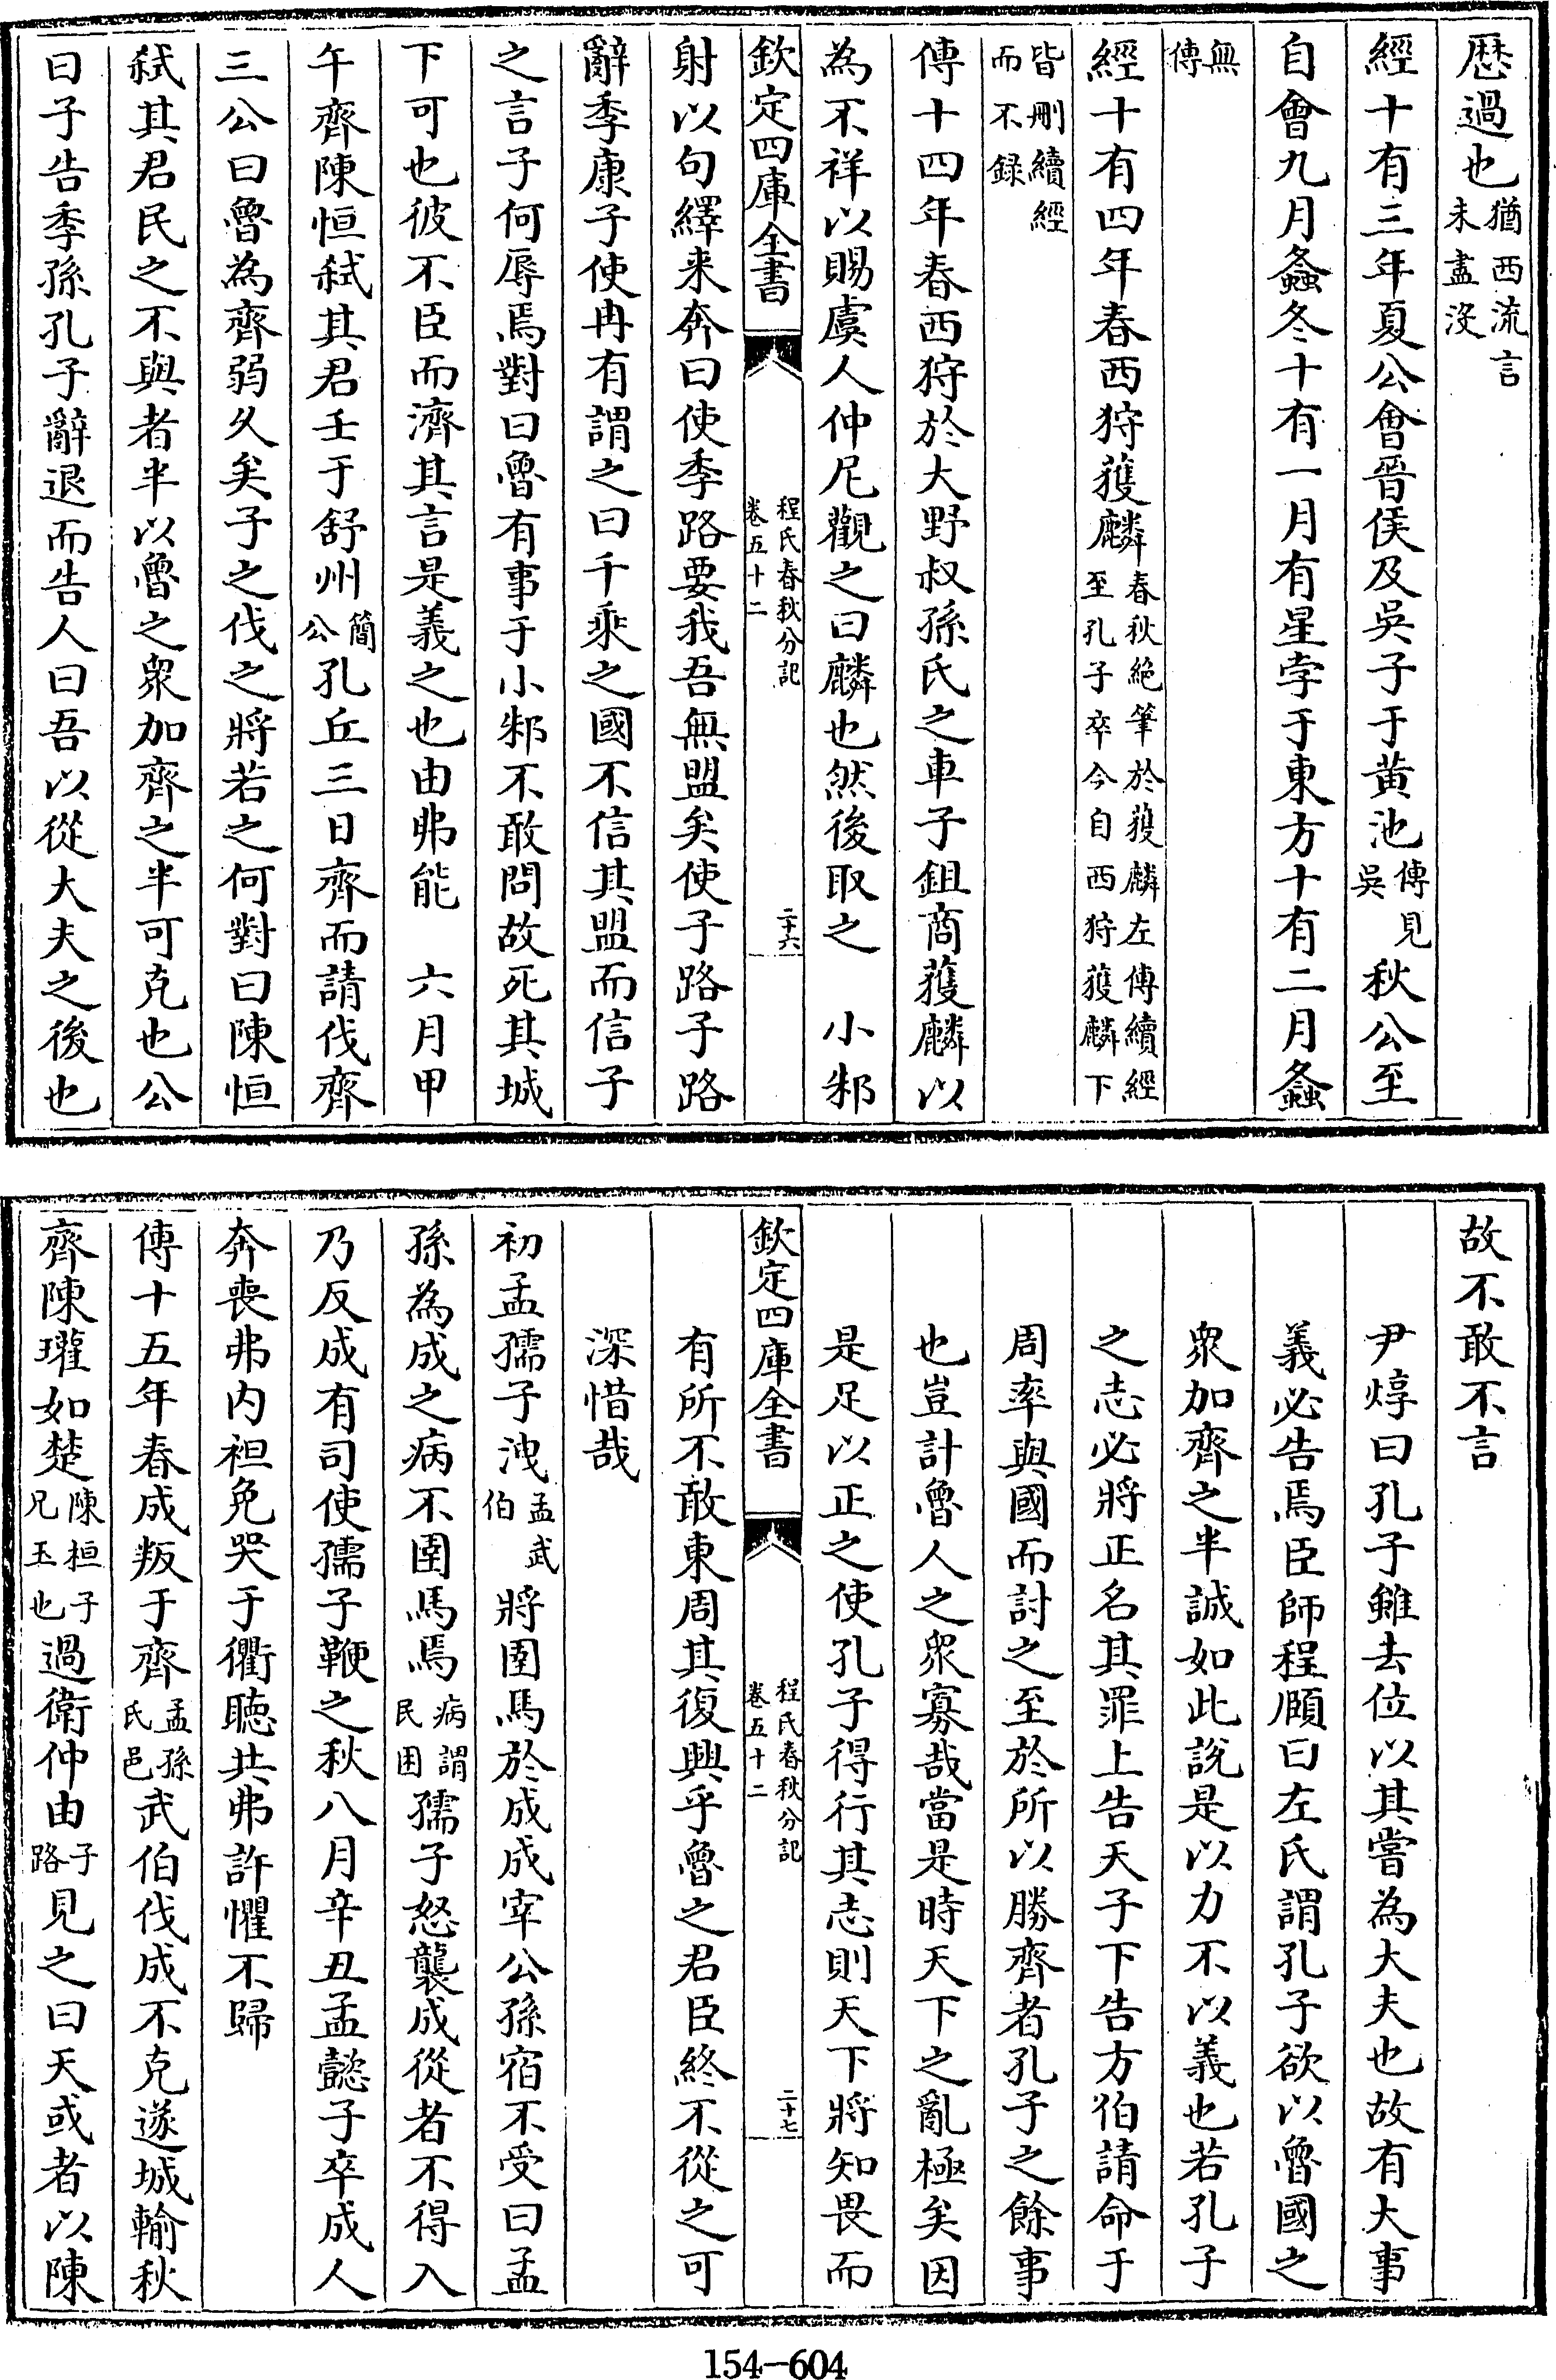 厯過也猶西流言未盡沒
經十有三年夏公會晉侯及吳子于黄池傳見吳秋公至
自會九月螽冬十有一月有星孛于東方十有二月螽
無傳
經十有四年春西狩獲麟春秋絶筆於獲麟左傳續經至孔子卒今自西狩獲麟下
皆刪續經而不録
傳十四年春西狩於大野叔孫氏之車子鉏商獲麟以
為不祥以賜虞人仲尼觀之曰麟也然後取之　小邾
欽定四庫全書　程氏春秋分記卷五十二　二十六
射以句繹來奔曰使季路要我吾無盟矣使子路子路
辭季康子使冉有謂之曰千乘之國不信其盟而信子
之言子何辱焉對曰魯有事于小邾不敢問故死其城
下可也彼不臣而濟其言是義之也由弗能　六月甲
午齊陳恒弑其君壬于舒州簡公孔丘三日齊而請伐齊
三公曰魯為齊弱久矣子之伐之將若之何對曰陳恒
弑其君民之不與者半以魯之衆加齊之半可克也公
曰子告季孫孔子辭退而告人曰吾以從大夫之後也
故不敢不言
尹焞曰孔子雖去位以其嘗為大夫也故有大事
義必告焉臣師程頤曰左氏謂孔子欲以魯國之
衆加齊之半誠如此說是以力不以義也若孔子
之志必將正名其罪上告天子下告方伯請命于
周率與國而討之至於所以勝齊者孔子之餘事
也豈計魯人之衆寡哉當是時天下之亂極矣因
是足以正之使孔子得行其志則天下將知畏而
欽定四庫全書　程氏春秋分記卷五十二　二十七
有所不敢東周其復興乎魯之君臣終不從之可
深惜哉
初孟孺子洩孟武伯將圉馬於成成宰公孫宿不受曰孟
孫為成之病不圉馬焉病謂民困孺子怒襲成從者不得入
乃反成有司使孺子鞭之秋八月辛丑孟懿子卒成人
奔喪弗内袒免哭于衢聽共弗許懼不歸
傳十五年春成叛于齊孟孫氏邑武伯伐成不克遂城輸秋
齊陳瓘如楚陳桓子兄玉也過衛仲由子路見之曰天或者以陳
154-604